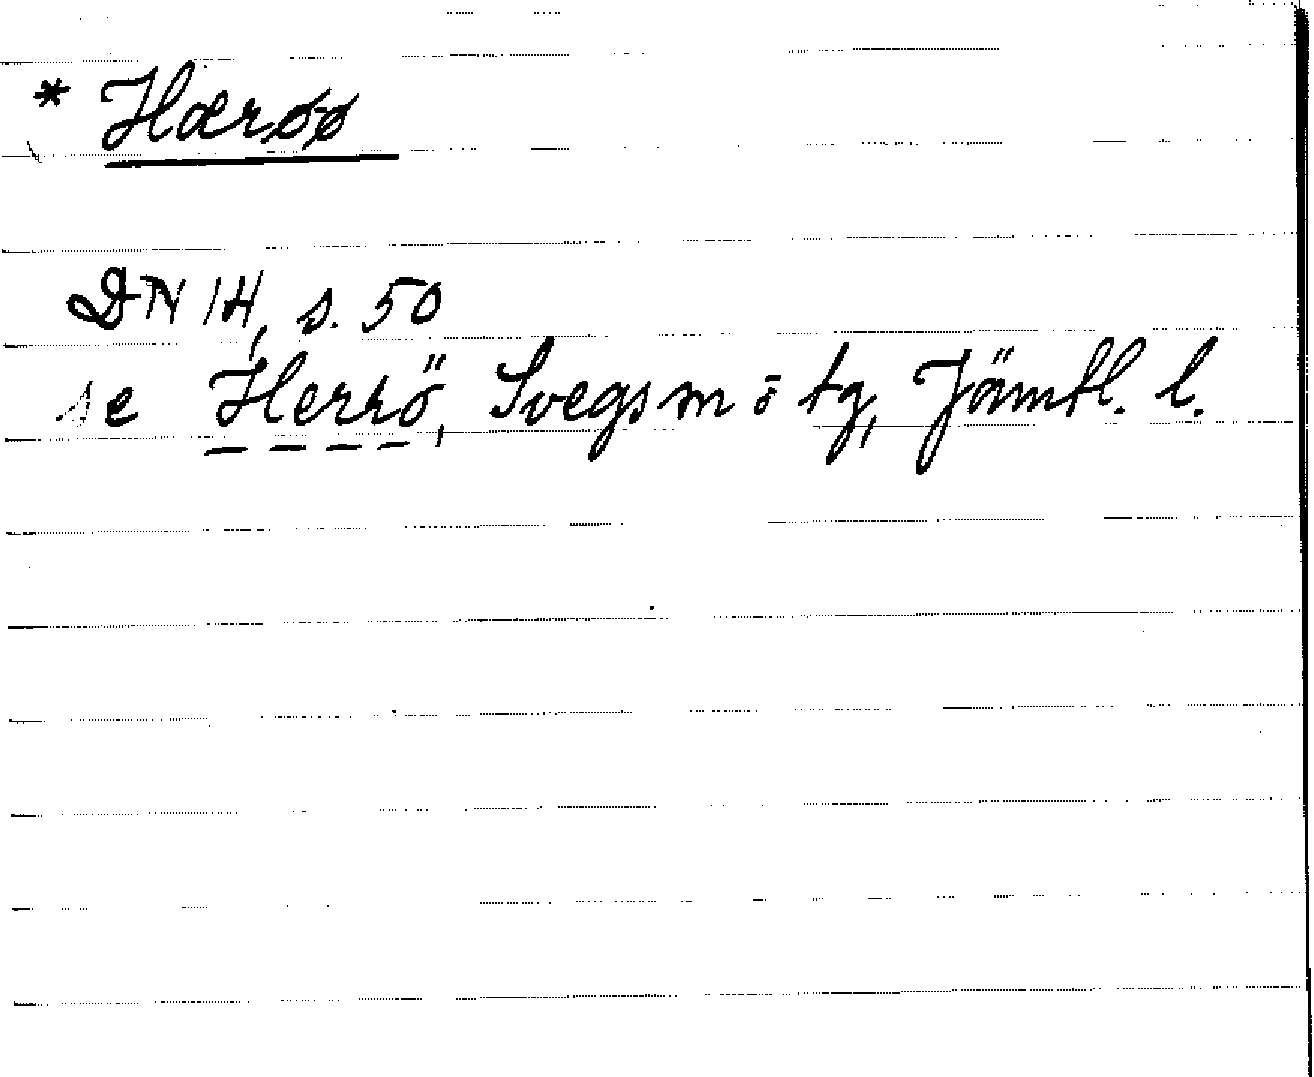 * Hærøø
DN 14, s. 50
se Herrö, Svegs sn ö tg, Jämtl. l.